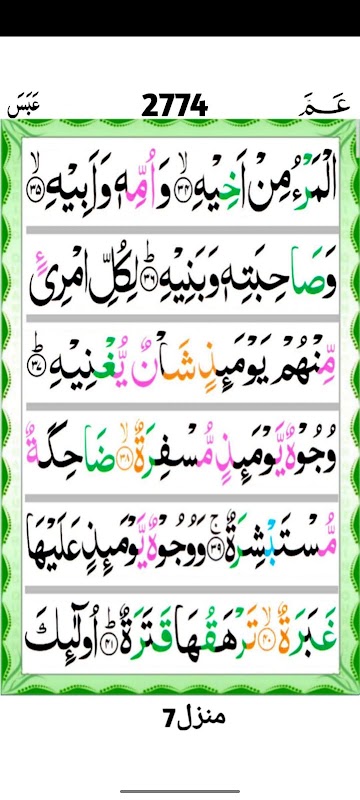 عَبَسَ 2774 عَمَّ
الْمَرْءُ مِنْ اَخِيْهِ ۙ﴿۳۴﴾ وَاُمِّهٖ وَاَبِيْهِ ۙ﴿۳۵﴾
وَصَاحِبَتِهٖ وَبَنِيْهِ ؕ﴿۳۶﴾ لِكُلِّ امْرِئٍ
مِّنْهُمْ يَوْمَئِذٍ شَاْنٌ يُّغْنِيْهِ ؕ﴿۳۷﴾
وُجُوْهٌ يَّوْمَئِذٍ مُّسْفِرَةٌ ۙ﴿۳۸﴾ ضَاحِكَةٌ
مُّسْتَبْشِرَةٌ ۚ﴿۳۹﴾ وَوُجُوْهٌ يَّوْمَئِذٍ عَلَيْهَا
غَبَرَةٌ ۙ﴿۴۰﴾ تَرْهَقُهَا قَتَرَةٌ ؕ﴿۴۱﴾ اُولٰٓئِكَ
منزل7